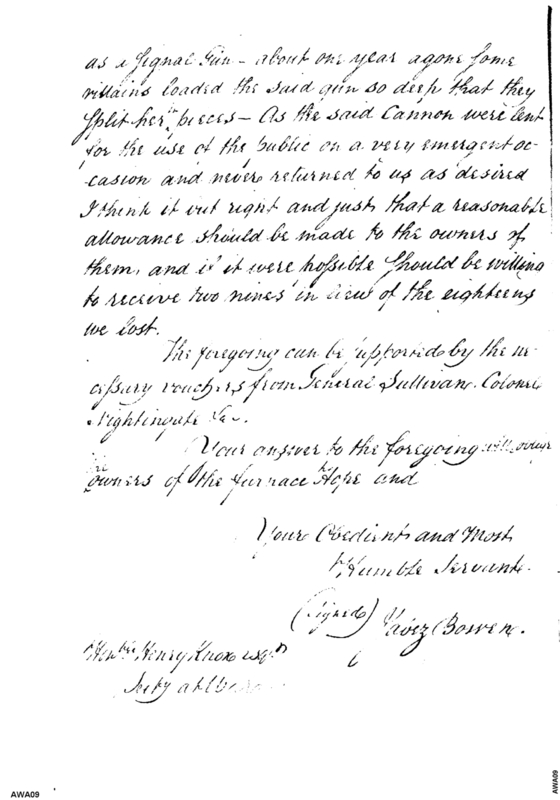 as a Signal Gun – about one year agone some
villains loaded the said gun so deep that they
split her in pieces – As the said Cannon were lent
for the use of the public on a very emergent oc-
casion and never returned to us as desired
I think it but right and just that a reasonable
allowance should be made to the owners of
them, and if it were possible should be willing
to receive two nines in liew of the eighteens
we lost.
The foregoing can be supported by the ne-
cessary vouchers from General Sullivan. Colonel
Nightingale &c.
Your answer to the foregoing will oblige
the owners of the furnace Hope and
Your Obedient and Most
Humble Servant.
(signed) Jabez Bowen.
Honble Henry Knox esqr
Secty at War
AWA09
AWA09